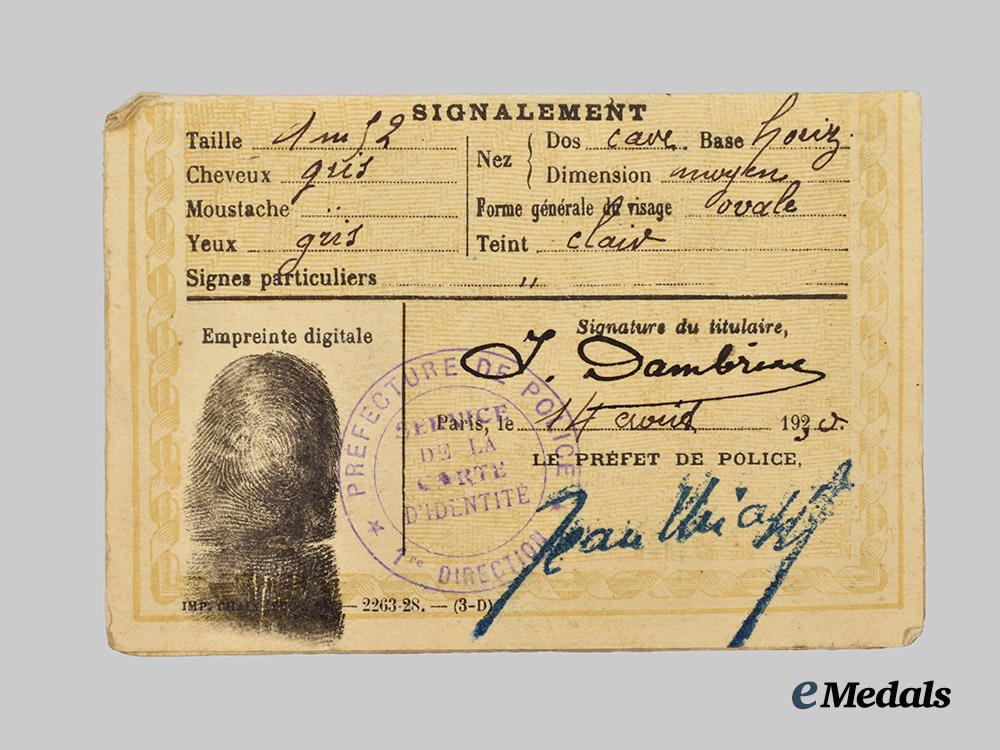 SIGNALEMENT
Taille 1m52
Cheveux gris
Moustache "
Yeux gris
Nez
Dos cave. Base horiz.
Dimension moyen
Forme générale du visage ovale
Teint clair
Signes particuliers "
Empreinte digitale
Signature du titulaire,
J.
Paris, le 14 août 1930.
LE PRÉFET DE POLICE,
Jean Chiappe
PRÉFECTURE DE POLICE
SERVICE
DE LA
CARTE
D'IDENTITÉ
★ 1re DIRECTION ★
IMP. CHAIX — 2263-28. — (3-D)
eMedals